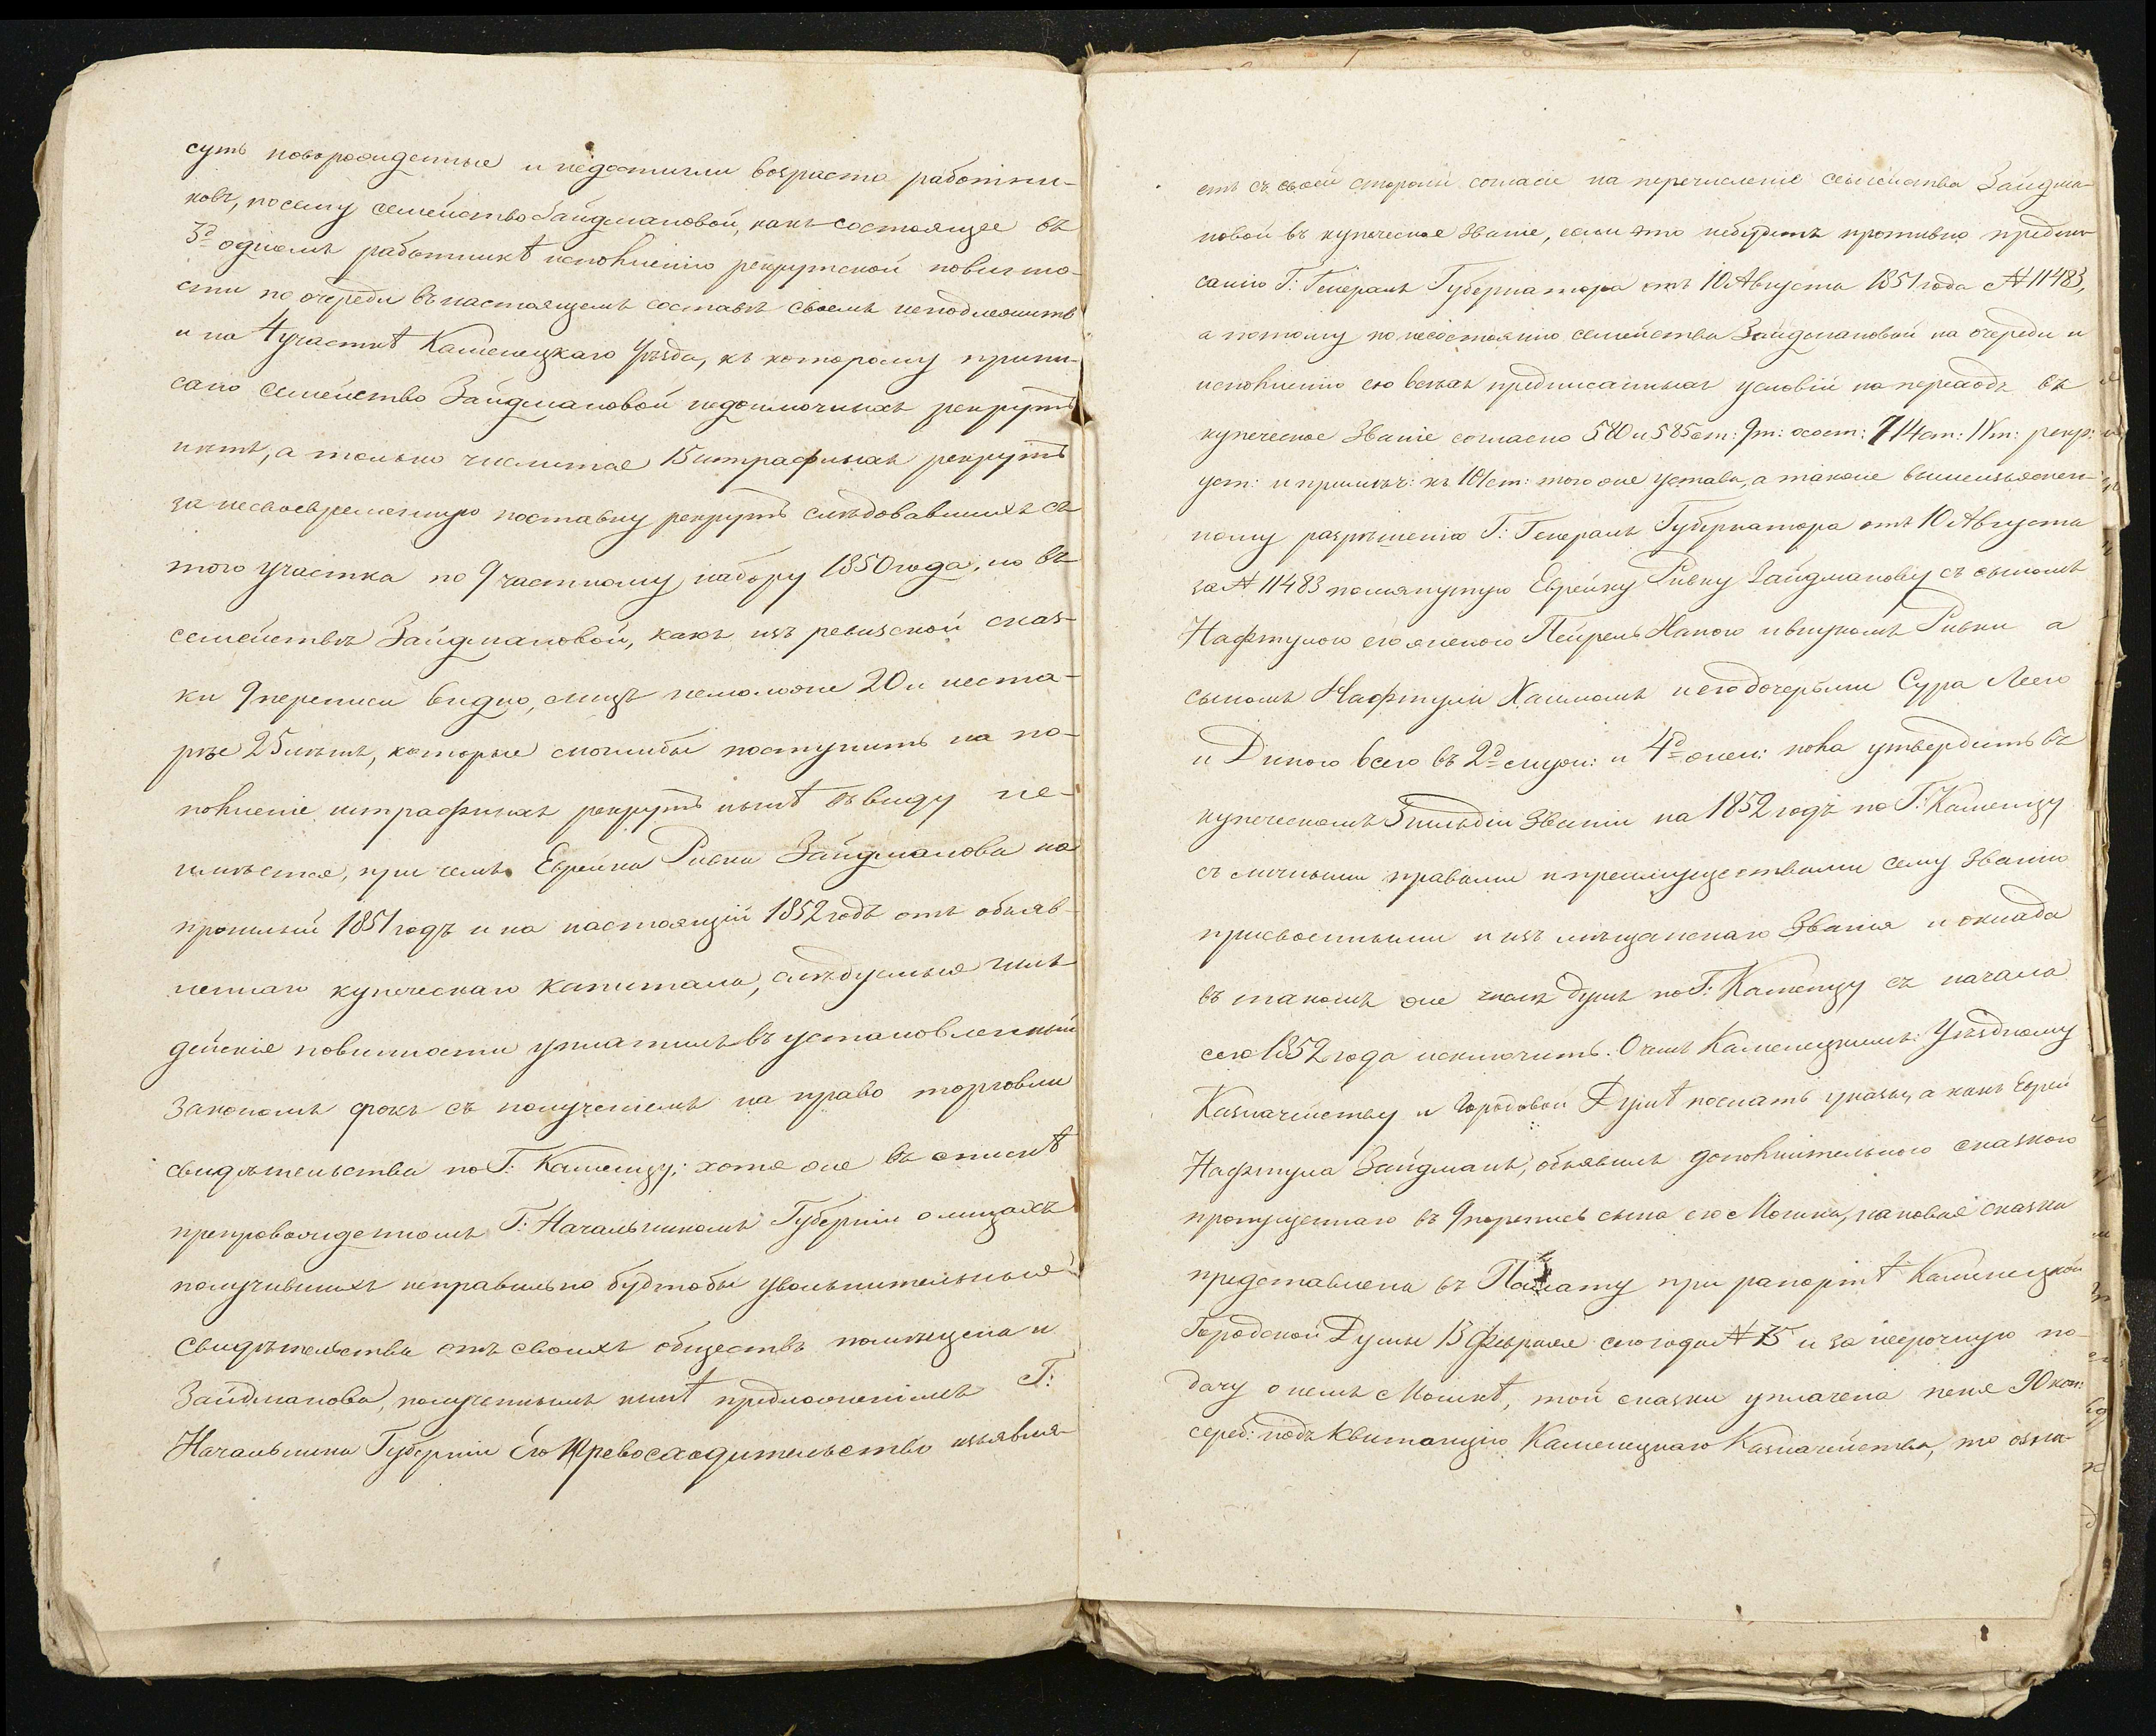 суть новорожденные и недостигли возраста работни-
ковъ, посему семейство Зайдмановой, какъ состоящее въ
3<sup>д</sup> одномъ работникѣ исполненію рекрутской повинно-
сти по очереди въ настоящемъ составѣ своемъ неподлежитъ
и на 4 участкѣ Каменецкаго Уѣзда, къ которому припи-
сано семейство Зайдмановой недоимочныхъ рекрутъ
нѣтъ, а только числится 15 штрафныхъ рекрутъ
за несвоевременную поставку рекрутъ слѣдовавшихъ съ
того участка по 9 частному набору 1850 года, но въ
семействѣ Зайдмановой, какъ изъ ревизской сказ-
ки 9 переписи видно, лицъ немоложе 20 и неста-
рѣе 25 лѣтъ, которые моглибы поступить на по-
полненіе штрафныхъ рекрутъ нынѣ въ виду не-
имѣется, при чемъ Еврейка Ривка Зайдманова на
прошлый 1851 годъ и на настоящій 1852 годъ отъ объяв-
леннаго купеческаго капитала, слѣдуемыя гиль
дейскія повинности уплатила въ установленный
закономъ срокъ съ полученіемъ на право торговли
свидѣтельства по Г: Каменцу; хотя же въ спискѣ
препровожденномъ Г: Начальникомъ Губерніи о лицахъ
получившихъ неправильно будтобы увольнительныя
свидѣтельства отъ своихъ обществъ помѣщена и
Зайдманова, полученнымъ нынѣ предложеніемъ Г:
Начальника Губерніи Его Превосходительство изъявля-
етъ съ своей стороны согласіе на перечисленіе семейства Зайдма-
новой въ купеческое званіе, если это небудетъ противно предпи-
санію Г: Генералъ Губернатора отъ 10 Августа 1851 года № 11483,
а потому по несостоянію семейства Зайдмановой на очереди и
исполненію ею всѣхъ предписанныхъ условій на переходъ въ
купеческое званіе согласно 580 и 585 ст: 9 т: о сост: 714 ст: 11 т: рекр:
уст: и примѣч: къ 101 ст: того же устава, а также вышеизъяснен-
ному разрѣшенію Г: Генералъ Губернатора отъ 10 Августа
за № 11483 помянутую Еврейку Ривку Зайдманову съ сыномъ
Нафтулою его женою Пейрель Ханою и внукомъ Ривки а
сыномъ Нафтулы Хаимомъ и его дочерьми Сура Леею
и Диною всего въ 2<sup>д</sup> муж: и 4<sup>д</sup> жен: пола утвердить въ
купеческомъ 3 гильдіи званіи на 1852 годъ по Г: Каменцу
съ личными правами и преимуществами сему званію
присвоенными и изъ мѣщанскаго званія и оклада
въ такомъ же числѣ душъ по Г: Каменцу съ начала
сего 1852 года исключить. О чемъ Каменецкимъ: Уѣздному
Казначейству и Городовой Думѣ послать указы, а какъ Еврей
Нафтула Зайдманъ, объявилъ дополнительною сказкою
пропущеннаго въ 9 перепись сына его Мошка, каковая сказка
представлена въ Палату при рапортѣ Каменецкой
Городской Думы 13 Февраля сего года № 75 и за несрочную по-
дачу о немъ Мошкѣ, той сказки уплачена пеня 90 коп:
сереб: подъ квитанцію Каменецкаго Казначейства, то озна-